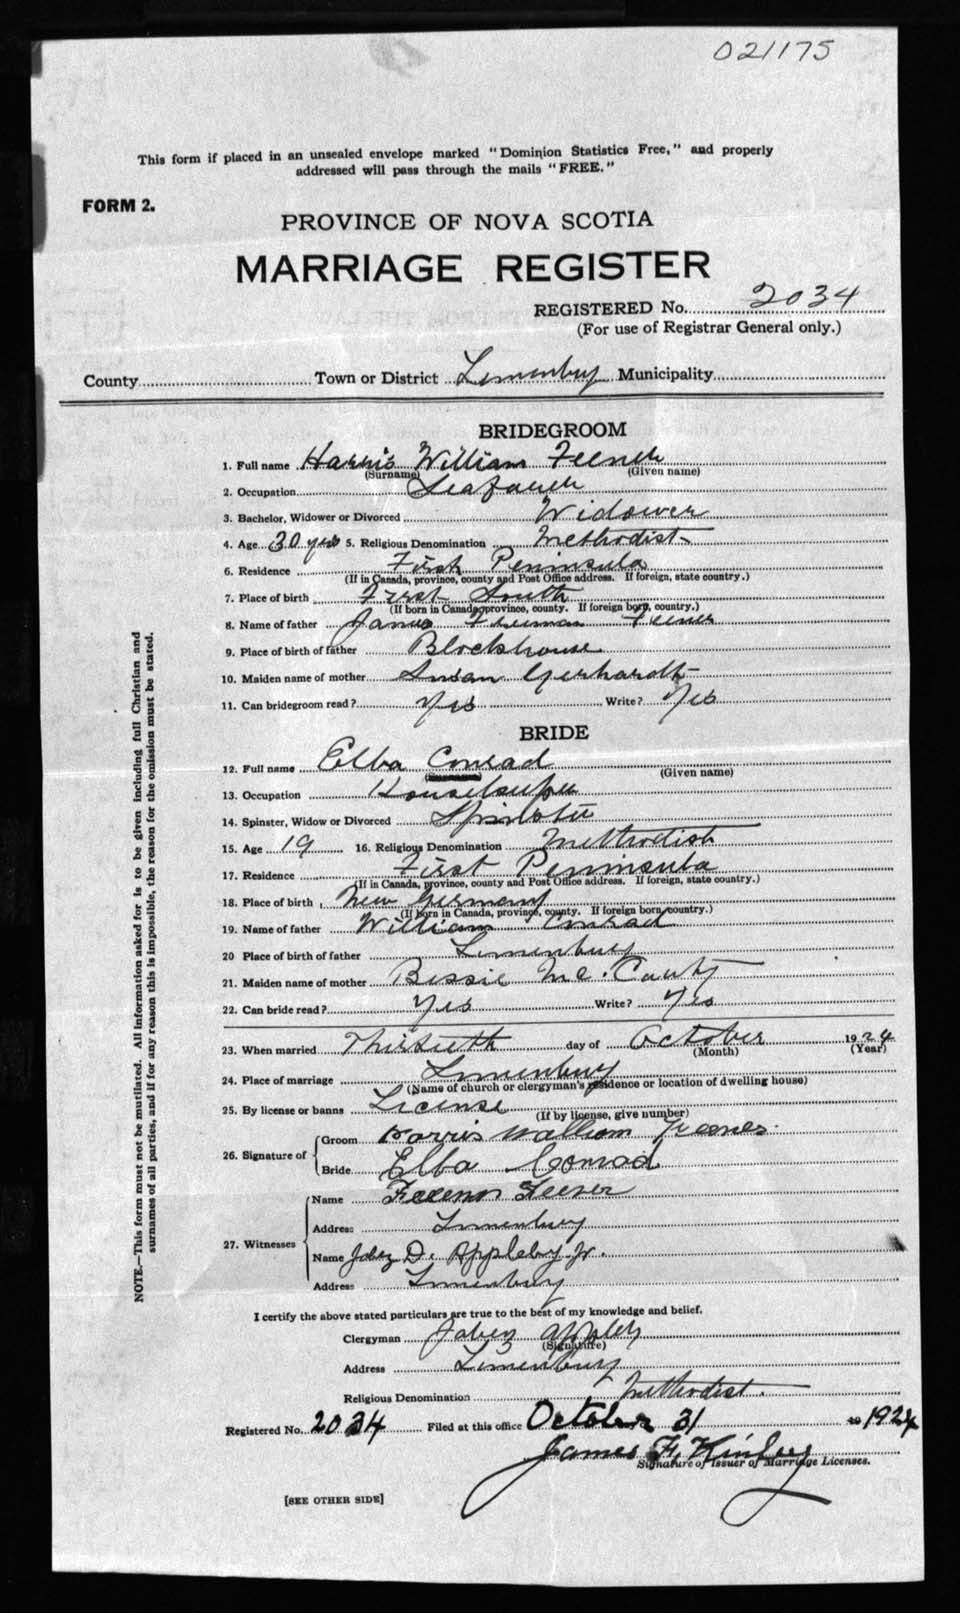 021175
This form if placed in an unsealed envelope marked "Dominion Statistics Free," and properly
addressed will pass through the mails "FREE."
FORM 2.
PROVINCE OF NOVA SCOTIA
MARRIAGE REGISTER
REGISTERED No. 2034
(For use of Registrar General only.)
County Town or District Lunenburg Municipality
BRIDEGROOM
1. Full name Harris William Feener
(Surname) (Given name)
2. Occupation
3. Bachelor, Widower or Divorced Widower
4. Age 30 yrs 5. Religious Denomination Methodist
6. Residence First Peninsula
(If in Canada, province, county and Post Office address. If foreign, state country.)
7. Place of birth First South
(If born in Canada, province, county. If foreign born, country.)
8. Name of father James Feener
9. Place of birth of father Blockhouse
10. Maiden name of mother Susan Gerhardt
11. Can bridegroom read? Yes Write? Yes
BRIDE
12. Full name Elba Conrad
(Given name)
13. Occupation Housekeeper
14. Spinster, Widow or Divorced Spinster
15. Age 19 16. Religious Denomination Methodist
17. Residence First Peninsula
(If in Canada, province, county and Post Office address. If foreign, state country.)
18. Place of birth New Germany
(If born in Canada, province, county. If foreign born, country.)
19. Name of father William Conrad
20 Place of birth of father Lunenburg
21. Maiden name of mother Bessie Mc.
22. Can bride read? Yes Write? Yes
23. When married Thirtieth day of October 1924
(Month) (Year)
24. Place of marriage Lunenburg
(Name of church or clergyman's residence or location of dwelling house)
25. By license or banns License
(If by license, give number)
26. Signature of
Groom Harris William Feener
Bride Elba Conrad
27. Witnesses
Name Feener
Address Lunenburg
Name Jabez D. Appleby Jr.
Address Lunenburg
I certify the above stated particulars are true to the best of my knowledge and belief.
Clergyman Jabez Appleby
(Signature)
Address Lunenburg
Religious Denomination Methodist.
Registered No. 2034 Filed at this office October 31 19 1924
James F. Kinley
Signature of Issuer of Marriage Licenses.
[SEE OTHER SIDE]
NOTE.—This form must not be mutilated. All information asked for is to be given including full Christian and
surnames of all parties, and if for any reason this is impossible, the reason for the omission must be stated.